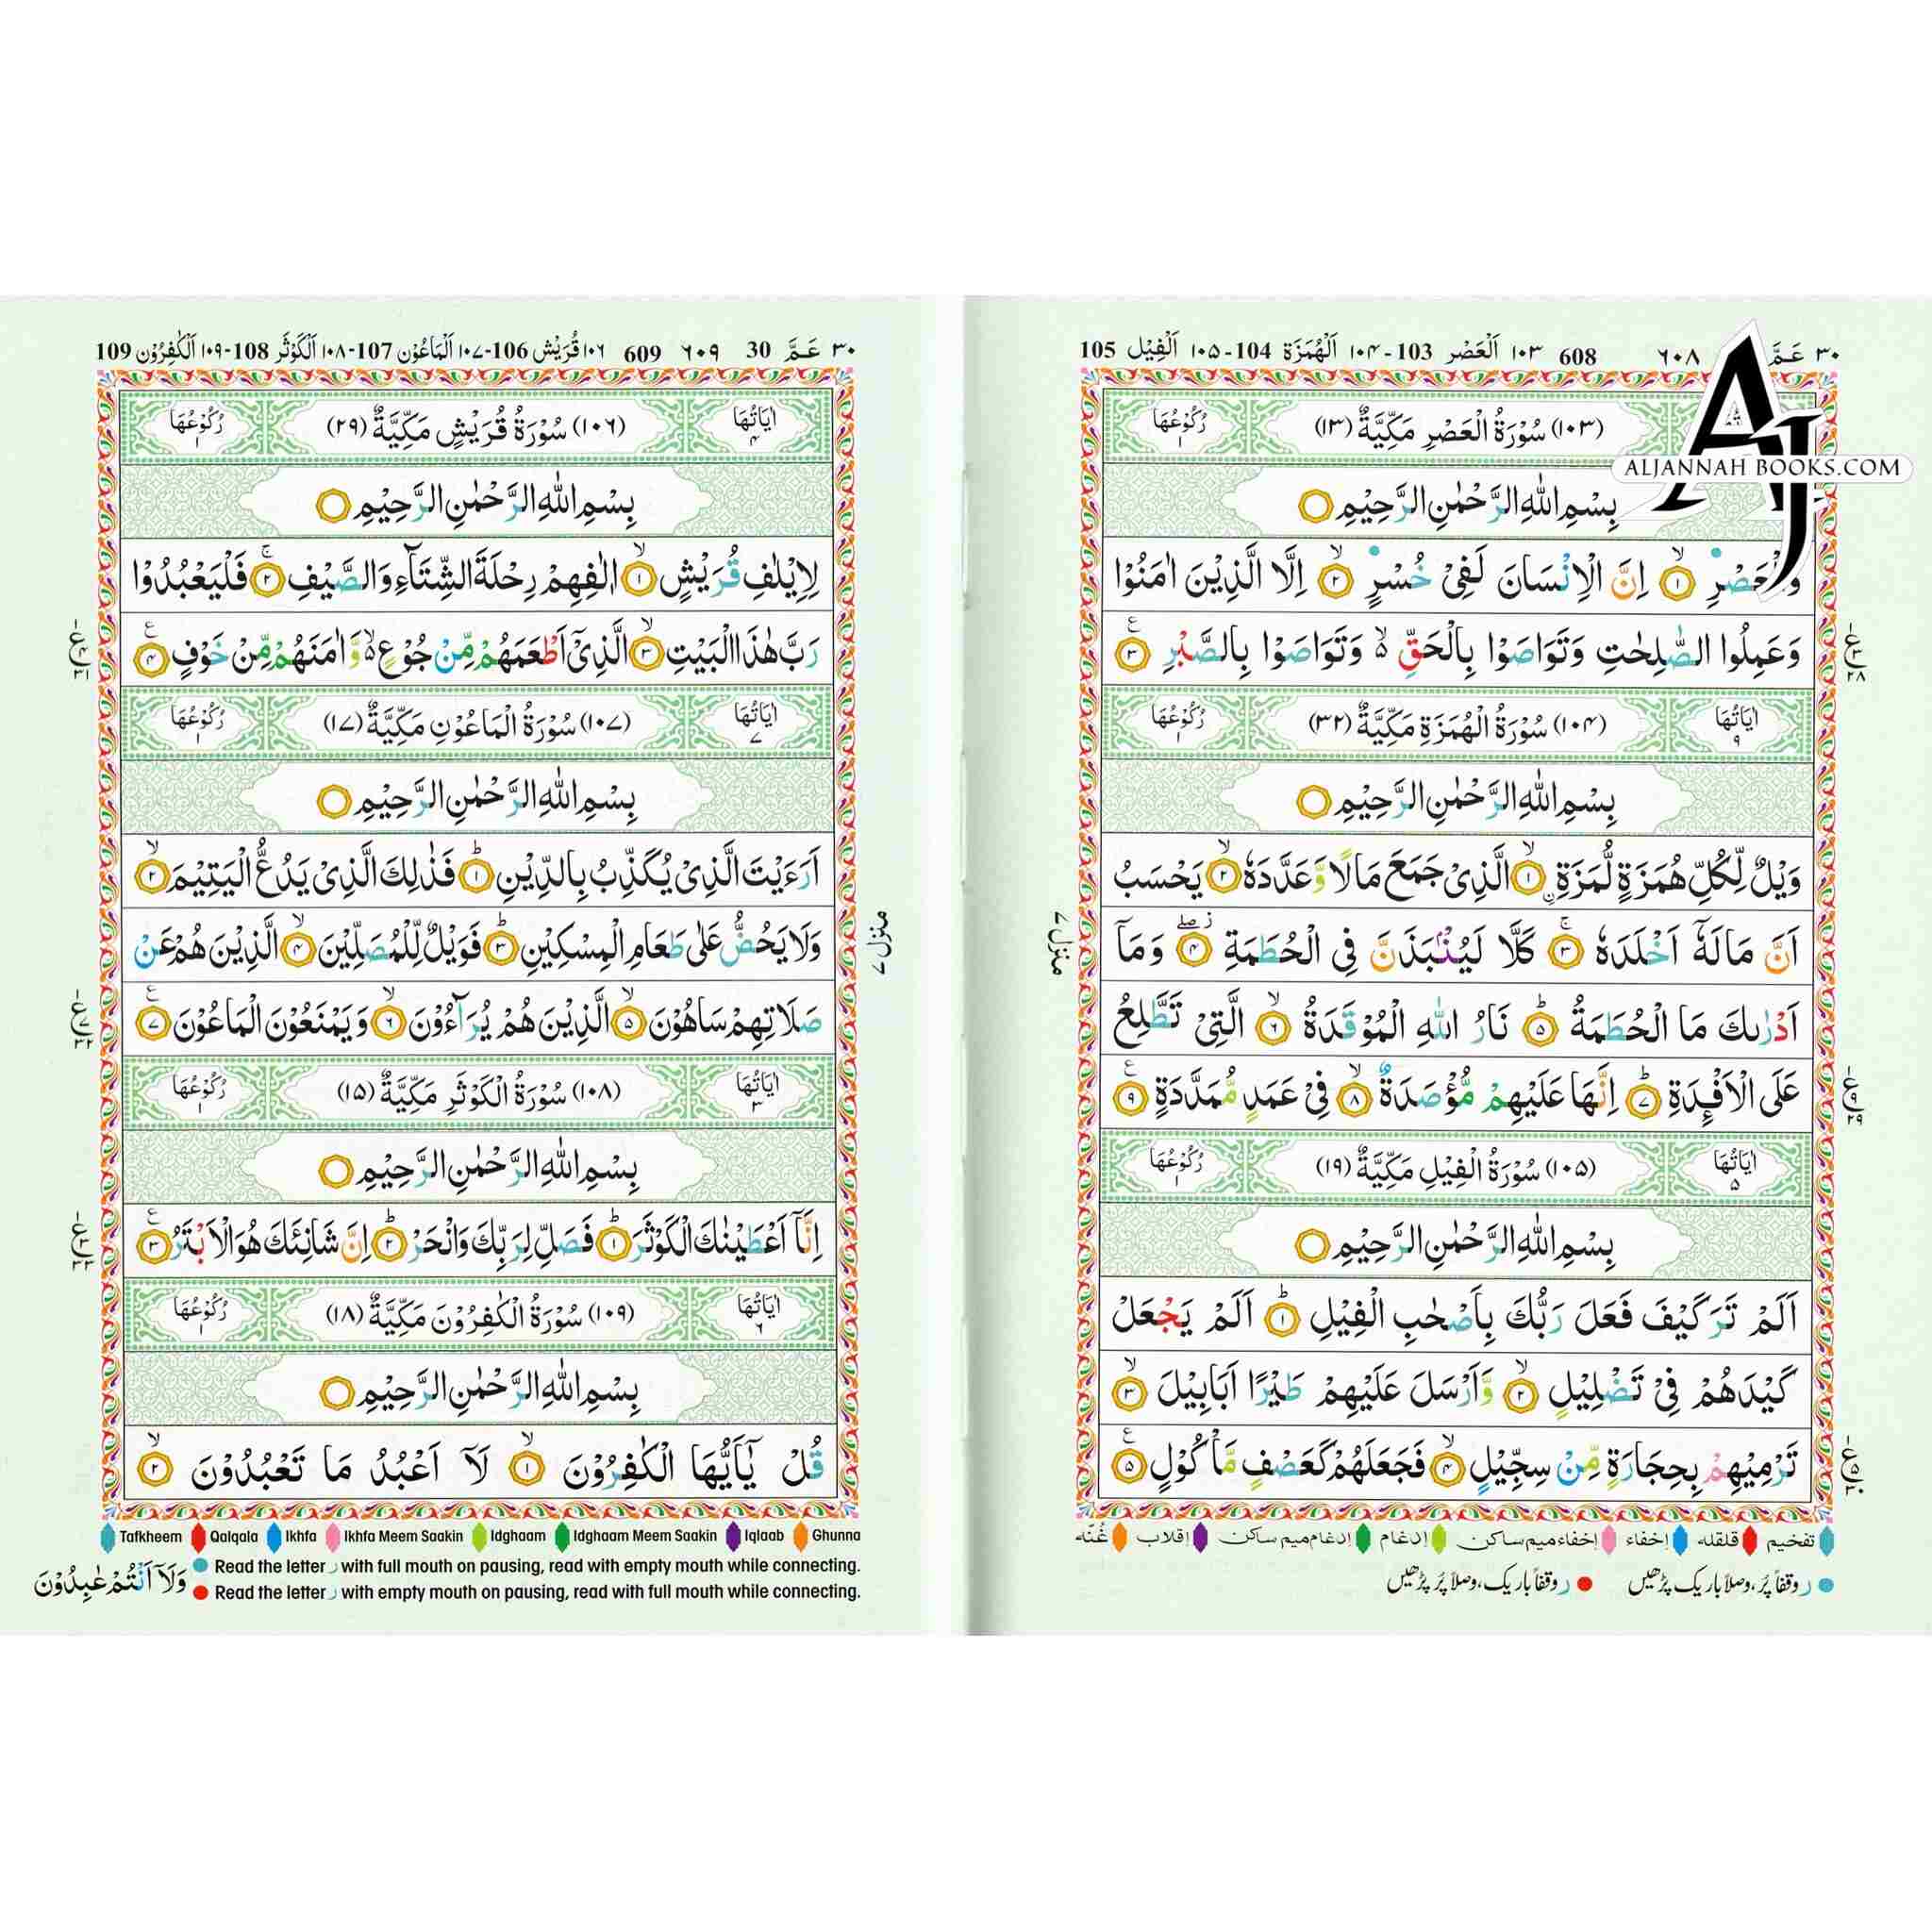 ٣٠ عَمَّ ٦٠٨ 608 ١٠٣ اَلْعَصْر 103-١٠٤ اَلْهُمَزَة 104-١٠٥ اَلْفِيْل 105
ALJANNAH BOOKS.COM
(١٠٣) سُوْرَةُ الْعَصْرِ مَكِّيَّةٌ (١٣) رُكُوْعُهَا ١
بِسْمِ اللّٰهِ الرَّحْمٰنِ الرَّحِيْمِ
وَالْعَصْرِ ۙ ١ اِنَّ الْاِنْسَانَ لَفِيْ خُسْرٍ ۙ ٢ اِلَّا الَّذِيْنَ اٰمَنُوْا
وَعَمِلُوا الصّٰلِحٰتِ وَتَوَاصَوْا بِالْحَقِّ ۙ وَتَوَاصَوْا بِالصَّبْرِ ٣
(١٠٤) سُوْرَةُ الْهُمَزَةِ مَكِّيَّةٌ (٣٢) اٰيَاتُهَا ٩ رُكُوْعُهَا ١
بِسْمِ اللّٰهِ الرَّحْمٰنِ الرَّحِيْمِ
وَيْلٌ لِّكُلِّ هُمَزَةٍ لُّمَزَةِ ۙ ١ الَّذِيْ جَمَعَ مَالًا وَّعَدَّدَهٗ ۙ ٢ يَحْسَبُ
اَنَّ مَالَهٗٓ اَخْلَدَهٗ ۚ ٣ كَلَّا لَيُنْۢبَذَنَّ فِي الْحُطَمَةِ ٤ وَمَآ
اَدْرٰىكَ مَا الْحُطَمَةُ ؕ ٥ نَارُ اللّٰهِ الْمُوْقَدَةُ ۙ ٦ الَّتِيْ تَطَّلِعُ
عَلَى الْاَفْـِٕدَةِ ؕ ٧ اِنَّهَا عَلَيْهِمْ مُّؤْصَدَةٌ ۙ ٨ فِيْ عَمَدٍ مُّمَدَّدَةٍ ٩
(١٠٥) سُوْرَةُ الْفِيْلِ مَكِّيَّةٌ (١٩) اٰيَاتُهَا ٥ رُكُوْعُهَا ١
بِسْمِ اللّٰهِ الرَّحْمٰنِ الرَّحِيْمِ
اَلَمْ تَرَ كَيْفَ فَعَلَ رَبُّكَ بِاَصْحٰبِ الْفِيْلِ ؕ ١ اَلَمْ يَجْعَلْ
كَيْدَهُمْ فِيْ تَضْلِيْلٍ ۙ ٢ وَّاَرْسَلَ عَلَيْهِمْ طَيْرًا اَبَابِيْلَ ۙ ٣
تَرْمِيْهِمْ بِحِجَارَةٍ مِّنْ سِجِّيْلٍ ۙ ٤ فَجَعَلَهُمْ كَعَصْفٍ مَّاْكُوْلٍ ٥
تفخيم قلقله إخفاء إخفاء ميم ساكن إدغام إدغام ميم ساكن إقلاب غُنّه
ر وقفاً پُر، وصلاً باریک پڑھیں ر وقفاً باریک، وصلاً پُر پڑھیں
منزل ٧
٣٠ عَمَّ 30 ٦٠٩ 609 ١٠٦ قُرَيْش 106-١٠٧ اَلْمَاعُوْن 107-١٠٨ اَلْكَوْثَر 108-١٠٩ اَلْكٰفِرُوْن 109
(١٠٦) سُوْرَةُ قُرَيْشٍ مَكِّيَّةٌ (٢٩) اٰيَاتُهَا ٤ رُكُوْعُهَا ١
بِسْمِ اللّٰهِ الرَّحْمٰنِ الرَّحِيْمِ
لِاِيْلٰفِ قُرَيْشٍ ۙ ١ اٖلٰفِهِمْ رِحْلَةَ الشِّتَآءِ وَالصَّيْفِ ۚ ٢ فَلْيَعْبُدُوْا
رَبَّ هٰذَا الْبَيْتِ ۙ ٣ الَّذِيْٓ اَطْعَمَهُمْ مِّنْ جُوْعٍ ۙ وَّاٰمَنَهُمْ مِّنْ خَوْفٍ ٤
(١٠٧) سُوْرَةُ الْمَاعُوْنِ مَكِّيَّةٌ (١٧) اٰيَاتُهَا ٧ رُكُوْعُهَا ١
بِسْمِ اللّٰهِ الرَّحْمٰنِ الرَّحِيْمِ
اَرَءَيْتَ الَّذِيْ يُكَذِّبُ بِالدِّيْنِ ؕ ١ فَذٰلِكَ الَّذِيْ يَدُعُّ الْيَتِيْمَ ۙ ٢
وَلَا يَحُضُّ عَلٰى طَعَامِ الْمِسْكِيْنِ ؕ ٣ فَوَيْلٌ لِّلْمُصَلِّيْنَ ۙ ٤ الَّذِيْنَ هُمْ عَنْ
صَلَاتِهِمْ سَاهُوْنَ ۙ ٥ الَّذِيْنَ هُمْ يُرَآءُوْنَ ۙ ٦ وَيَمْنَعُوْنَ الْمَاعُوْنَ ٧
(١٠٨) سُوْرَةُ الْكَوْثَرِ مَكِّيَّةٌ (١٥) اٰيَاتُهَا ٣ رُكُوْعُهَا ١
بِسْمِ اللّٰهِ الرَّحْمٰنِ الرَّحِيْمِ
اِنَّآ اَعْطَيْنٰكَ الْكَوْثَرَ ؕ ١ فَصَلِّ لِرَبِّكَ وَانْحَرْ ؕ ٢ اِنَّ شَانِئَكَ هُوَ الْاَبْتَرُ ٣
(١٠٩) سُوْرَةُ الْكٰفِرُوْنَ مَكِّيَّةٌ (١٨) اٰيَاتُهَا ٦ رُكُوْعُهَا ١
بِسْمِ اللّٰهِ الرَّحْمٰنِ الرَّحِيْمِ
قُلْ يٰٓاَيُّهَا الْكٰفِرُوْنَ ۙ ١ لَآ اَعْبُدُ مَا تَعْبُدُوْنَ ۙ ٢
Tafkheem Qalqala Ikhfa Ikhfa Meem Saakin Idghaam Idghaam Meem Saakin Iqlaab Ghunna
Read the letter ر with full mouth on pausing, read with empty mouth while connecting.
Read the letter ر with empty mouth on pausing, read with full mouth while connecting.
وَلَآ اَنْتُمْ عٰبِدُوْنَ
منزل ٧